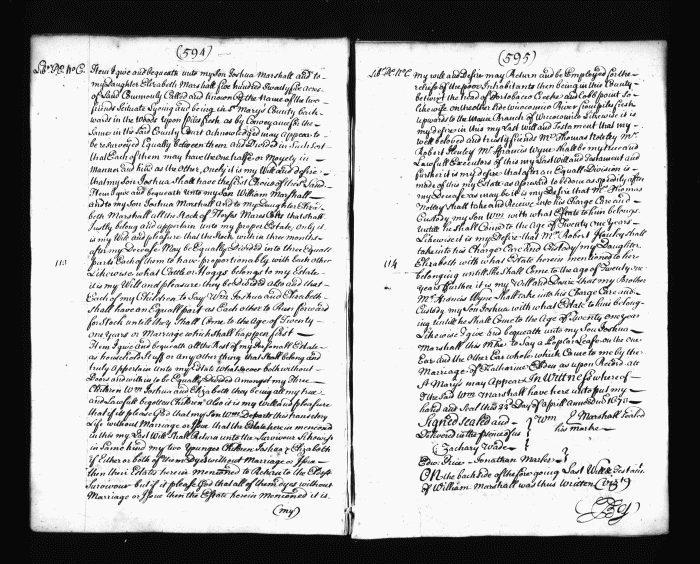 (594)
Item I give and bequeath unto my Son Joshua Marshall and to
my Daughter Elizabeth Marshall five hundred twenty five acres
of Land Commonly Called and known by the Name of the two
friends Scituate Lyeing and being in St Marys County back
wards in the Woods upon as by Conveyance for the
Same in the Said County Court Acknowledged may Appear to
be Surveyed Equally between them and Divided in Such Sort
that Each of them may have the one halfe or Moyety in
Manner and kind as the Other, only it is my Will and desire
that my Son Joshua Shall have the first Choice of the Land.
Item I give and bequeath unto my Son William Marshall
and to my Son Joshua Marshall and to my Daughter Eliza
beth Marshall all the Stock of Horses Mares Colts that shall
Justly belong and appertain unto my proper Estate, only it
is my Will and pleasure that the Stock within three months
after my Decease May be Equally Divided into three Equall
113
parts Each of them to have proportionably with Each other
Likewise what Cattle or Hoggs belongs to my Estate
it is my Will and pleasure they be Divided also and that
Each of my Children to Say Wm Joshua and Elizabeth
shall have an Equall part as Each other to Run forward
for Stock untill they Shall Come to the Age of Twenty
one years or Marriage which shall happen first
Item I give and bequeath all the Rest of my personall Estate
as household Stuff or any other thing that shall belong and
truly Appertain unto my Estate whatsoever both without
Doors and within to be Equally Divided Amongst my Three
Children Wm Joshua and Elizabeth they being all my true
and Lawfull begotten Children Also it is my will and pleasure
that if it please God that my Son Wm Departs this transitory
Life without Marriage or Issue that the Estate herein menconed
in this my Last Will Shall Return unto the Surviour Likewise
in Same kind my two Younger Children Joshua & Elizabeth
if Either or both of them Dyes without Marriage or Issue
then their Estates herein menconed to Return to the Eldest
Surviour but if it please God that all of them dyes without
Marriage or Issue then the Estate herein menconed it is
(my)
(595)
my will and Desire may Return and be Employed for the
reliefe of the poor Inhabitants then being in this County
between the head of Portobacco Creeke and Cobb point So
Likewise on the other Side Wicocomico River from
upwards to the Maine Branch of Wicocomico Likewise it is
my desire in this my Last will and Testament that my
well beloved and trusty friends Mr Thomas Notley Mr
Robert Henley Mr Francis Wyne shall be my true and
Lawfull Executors of this my Last Will and Testament and
further it is my desire that after an Equall Division is
made of this my Estate as aforesaid to be done as Speedily after
my Decease as may be it is my Desire that Mr Thomas
Notley shall take and Receive into his Charge Care and
Custody my Son Wm with what Estate to him belongs
untill he shall Come to the Age of Twenty one Years
Likewise it is my Desire that Mr Robert Henley shall
take into his Charge Care And Custody my Daughter
114
Elizabeth with what Estate herein menconed to her
belonging untill She shall Come to the Age of Twenty one
Years further it is my Will and Desire that my Brother
Mr Francis Wyne Shall take into his Charge Care and
Custody my Son Joshua with what Estate to him belong
ing untill he shall Come to the Age of Twenty one years
Likewise I give and bequeath unto my Son Joshua
Marshall this Marke to Say a Poplar Leafe on the one
Ear and the Other Ear whole which Came to me by the
Marriage of Katharine as upon Record att
St Marys may Appear In Witness whereof
I the Said Wm Marshall have here unto put my
hand and Seal this 22 Day of April Anno Dom 1673
Signed Sealed and
Delivered in the presence of us
Wm Marshall Sealed
his marke
Zachary Wade
Edw Price Jonathan Marler
On the back Side of the fore going Last Will & Testam
of William Marshall was thus written (vizt)